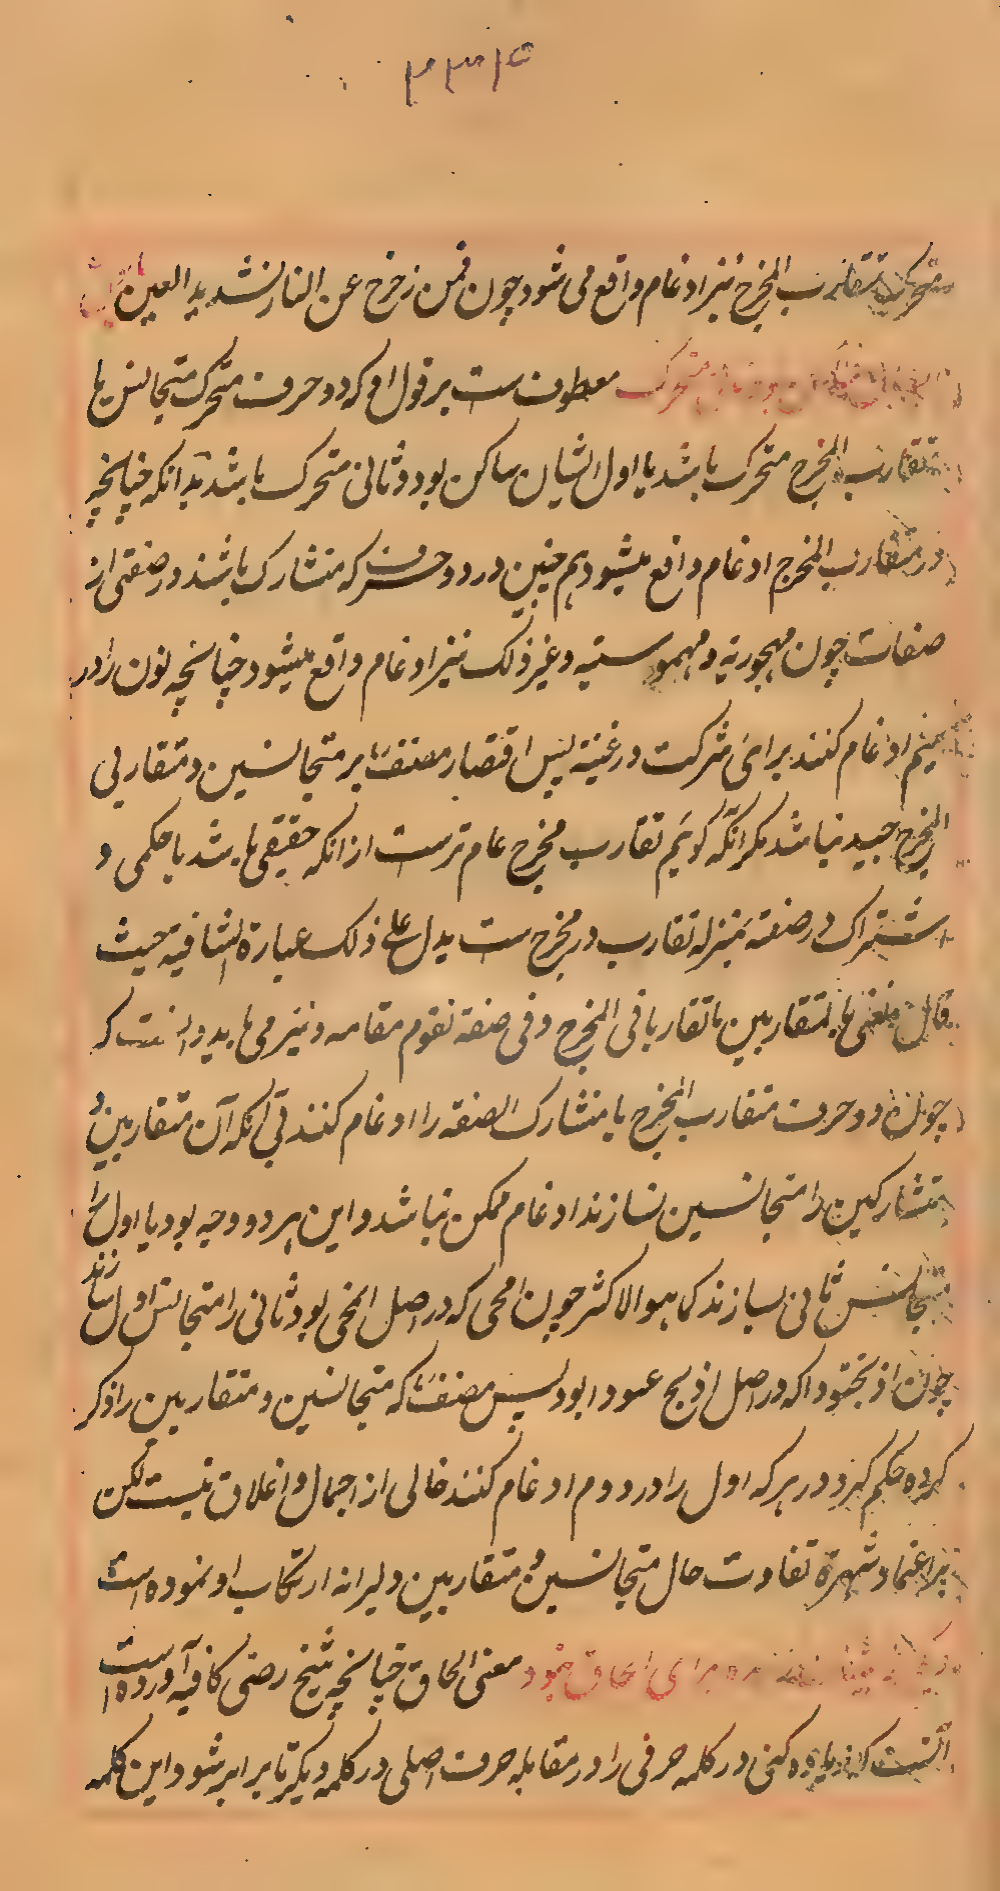 متحرک متقارب المخرج نیز ادغام واقع می شود چون فمن زحزح عن النار بتشدید العین یا
متحرک معطوف ست بر قول او که دو حرف متحرک متجانس یا
متقارب المخرج متحرک باشد یا اول ایشان ساکن بود و ثانی متحرک باشد بدانکه چنانچه
در متقارب المخرج ادغام واقع میشود هم چنین در دو حرف که متشارک باشند در صفتی از
صفات چون مجهوریه و مهموسیه و غیر ذلک نیز ادغام واقع میشود چنانچه نون را در
میم ادغام کنند برای شرکت در غنه پس اقتصار مصنف بر متجانسین و متقاربی
المخرج جید نباشد مگر آنکه گوئیم تقارب مخرج عام ترست از انکه حقیقی باشد یا حکمی و
اشتراک در صفة بمنزله تقارب در مخرج ست یدل علی ذلک عبارة الشافیة حیث
قال نعنی بالمتقاربین ما تقاربا فی المخرج و فی صفة تقوم مقامه و نیز می باید دانست که
چون دو حرف متقارب المخرج یا متشارک الصفة را ادغام کنند بی آنکه آن متقاربین و
متشارکین را متجانسین نسازند ادغام ممکن نباشد و این بر دو وجه بود یا اول را
متجانس ثانی بسازند کما هو الاکثر چون امحی که در اصل انمحی بود ثانی را متجانس اول سازند
چون اذبحتودا که در اصل اذبح عتودا بود پس مصنف که متجانسین و متقاربین را ذکر
کرده حکم کرد در هر که اول را در دوم ادغام کنند خالی از اجمال و اغلاق نیست لکن
بر اعتماد شهرة تفاوت حال متجانسین و متقاربین دلیرانه ارتکاب او نموده است
برای الحاق بود معنی الحاق چنانچه شیخ رضی کافیه آورده است
آنست که زیاده کنی در کلمه حرفی را در مقابله حرف اصلی در کلمه دیگر تا برابر شود این کلمه